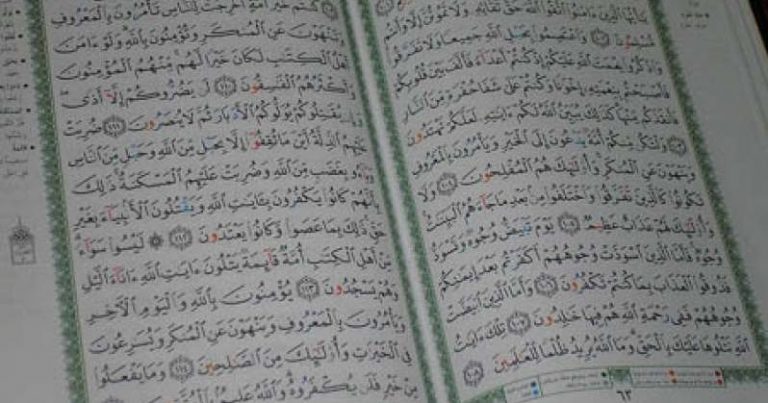 يَٰٓأَيُّهَا ٱلَّذِينَ ءَامَنُوا۟ ٱتَّقُوا۟ ٱللَّهَ حَقَّ تُقَاتِهِۦ وَلَا تَمُوتُنَّ إِلَّا وَأَنتُم
مُّسْلِمُونَ ١٠٢ وَٱعْتَصِمُوا۟ بِحَبْلِ ٱللَّهِ جَمِيعًا وَلَا تَفَرَّقُوا۟
وَٱذْكُرُوا۟ نِعْمَتَ ٱللَّهِ عَلَيْكُمْ إِذْ كُنتُمْ أَعْدَآءً فَأَلَّفَ بَيْنَ قُلُوبِكُمْ
فَأَصْبَحْتُم بِنِعْمَتِهِۦٓ إِخْوَٰنًا وَكُنتُمْ عَلَىٰ شَفَا حُفْرَةٍ مِّنَ ٱلنَّارِ
فَأَنقَذَكُم مِّنْهَا كَذَٰلِكَ يُبَيِّنُ ٱللَّهُ لَكُمْ ءَايَٰتِهِۦ لَعَلَّكُمْ تَهْتَدُونَ
١٠٣ وَلْتَكُن مِّنكُمْ أُمَّةٌ يَدْعُونَ إِلَى ٱلْخَيْرِ وَيَأْمُرُونَ بِٱلْمَعْرُوفِ
وَيَنْهَوْنَ عَنِ ٱلْمُنكَرِ وَأُو۟لَٰٓئِكَ هُمُ ٱلْمُفْلِحُونَ ١٠٤ وَلَا
تَكُونُوا۟ كَٱلَّذِينَ تَفَرَّقُوا۟ وَٱخْتَلَفُوا۟ مِنۢ بَعْدِ مَا جَآءَهُمُ ٱلْبَيِّنَٰتُ
وَأُو۟لَٰٓئِكَ لَهُمْ عَذَابٌ عَظِيمٌ ١٠٥ يَوْمَ تَبْيَضُّ وُجُوهٌ وَتَسْوَدُّ
وُجُوهٌ فَأَمَّا ٱلَّذِينَ ٱسْوَدَّتْ وُجُوهُهُمْ أَكَفَرْتُم بَعْدَ إِيمَٰنِكُمْ
فَذُوقُوا۟ ٱلْعَذَابَ بِمَا كُنتُمْ تَكْفُرُونَ ١٠٦ وَأَمَّا ٱلَّذِينَ ٱبْيَضَّتْ
وُجُوهُهُمْ فَفِى رَحْمَةِ ٱللَّهِ هُمْ فِيهَا خَٰلِدُونَ ١٠٧ تِلْكَ ءَايَٰتُ
ٱللَّهِ نَتْلُوهَا عَلَيْكَ بِٱلْحَقِّ وَمَا ٱللَّهُ يُرِيدُ ظُلْمًا لِّلْعَٰلَمِينَ ١٠٨
٦٣
كُنتُمْ خَيْرَ أُمَّةٍ أُخْرِجَتْ لِلنَّاسِ تَأْمُرُونَ بِٱلْمَعْرُوفِ
وَتَنْهَوْنَ عَنِ ٱلْمُنكَرِ وَتُؤْمِنُونَ بِٱللَّهِ وَلَوْ ءَامَنَ
أَهْلُ ٱلْكِتَٰبِ لَكَانَ خَيْرًا لَّهُم مِّنْهُمُ ٱلْمُؤْمِنُونَ
وَأَكْثَرُهُمُ ٱلْفَٰسِقُونَ ١١٠ لَن يَضُرُّوكُمْ إِلَّآ أَذًى
وَإِن يُقَٰتِلُوكُمْ يُوَلُّوكُمُ ٱلْأَدْبَارَ ثُمَّ لَا يُنصَرُونَ ١١١ ضُرِبَتْ
عَلَيْهِمُ ٱلذِّلَّةُ أَيْنَ مَا ثُقِفُوٓا۟ إِلَّا بِحَبْلٍ مِّنَ ٱللَّهِ وَحَبْلٍ مِّنَ ٱلنَّاسِ
وَبَآءُو بِغَضَبٍ مِّنَ ٱللَّهِ وَضُرِبَتْ عَلَيْهِمُ ٱلْمَسْكَنَةُ ذَٰلِكَ
بِأَنَّهُمْ كَانُوا۟ يَكْفُرُونَ بِـَٔايَٰتِ ٱللَّهِ وَيَقْتُلُونَ ٱلْأَنۢبِيَآءَ بِغَيْرِ
حَقٍّ ذَٰلِكَ بِمَا عَصَوا۟ وَّكَانُوا۟ يَعْتَدُونَ ١١٢ ۞ لَيْسُوا۟ سَوَآءً
مِّنْ أَهْلِ ٱلْكِتَٰبِ أُمَّةٌ قَآئِمَةٌ يَتْلُونَ ءَايَٰتِ ٱللَّهِ ءَانَآءَ ٱلَّيْلِ
وَهُمْ يَسْجُدُونَ ١١٣ يُؤْمِنُونَ بِٱللَّهِ وَٱلْيَوْمِ ٱلْءَاخِرِ
وَيَأْمُرُونَ بِٱلْمَعْرُوفِ وَيَنْهَوْنَ عَنِ ٱلْمُنكَرِ وَيُسَٰرِعُونَ
فِى ٱلْخَيْرَٰتِ وَأُو۟لَٰٓئِكَ مِنَ ٱلصَّٰلِحِينَ ١١٤ وَمَا يَفْعَلُوا۟
مِنْ خَيْرٍ فَلَن يُكْفَرُوهُ وَٱللَّهُ عَلِيمٌۢ